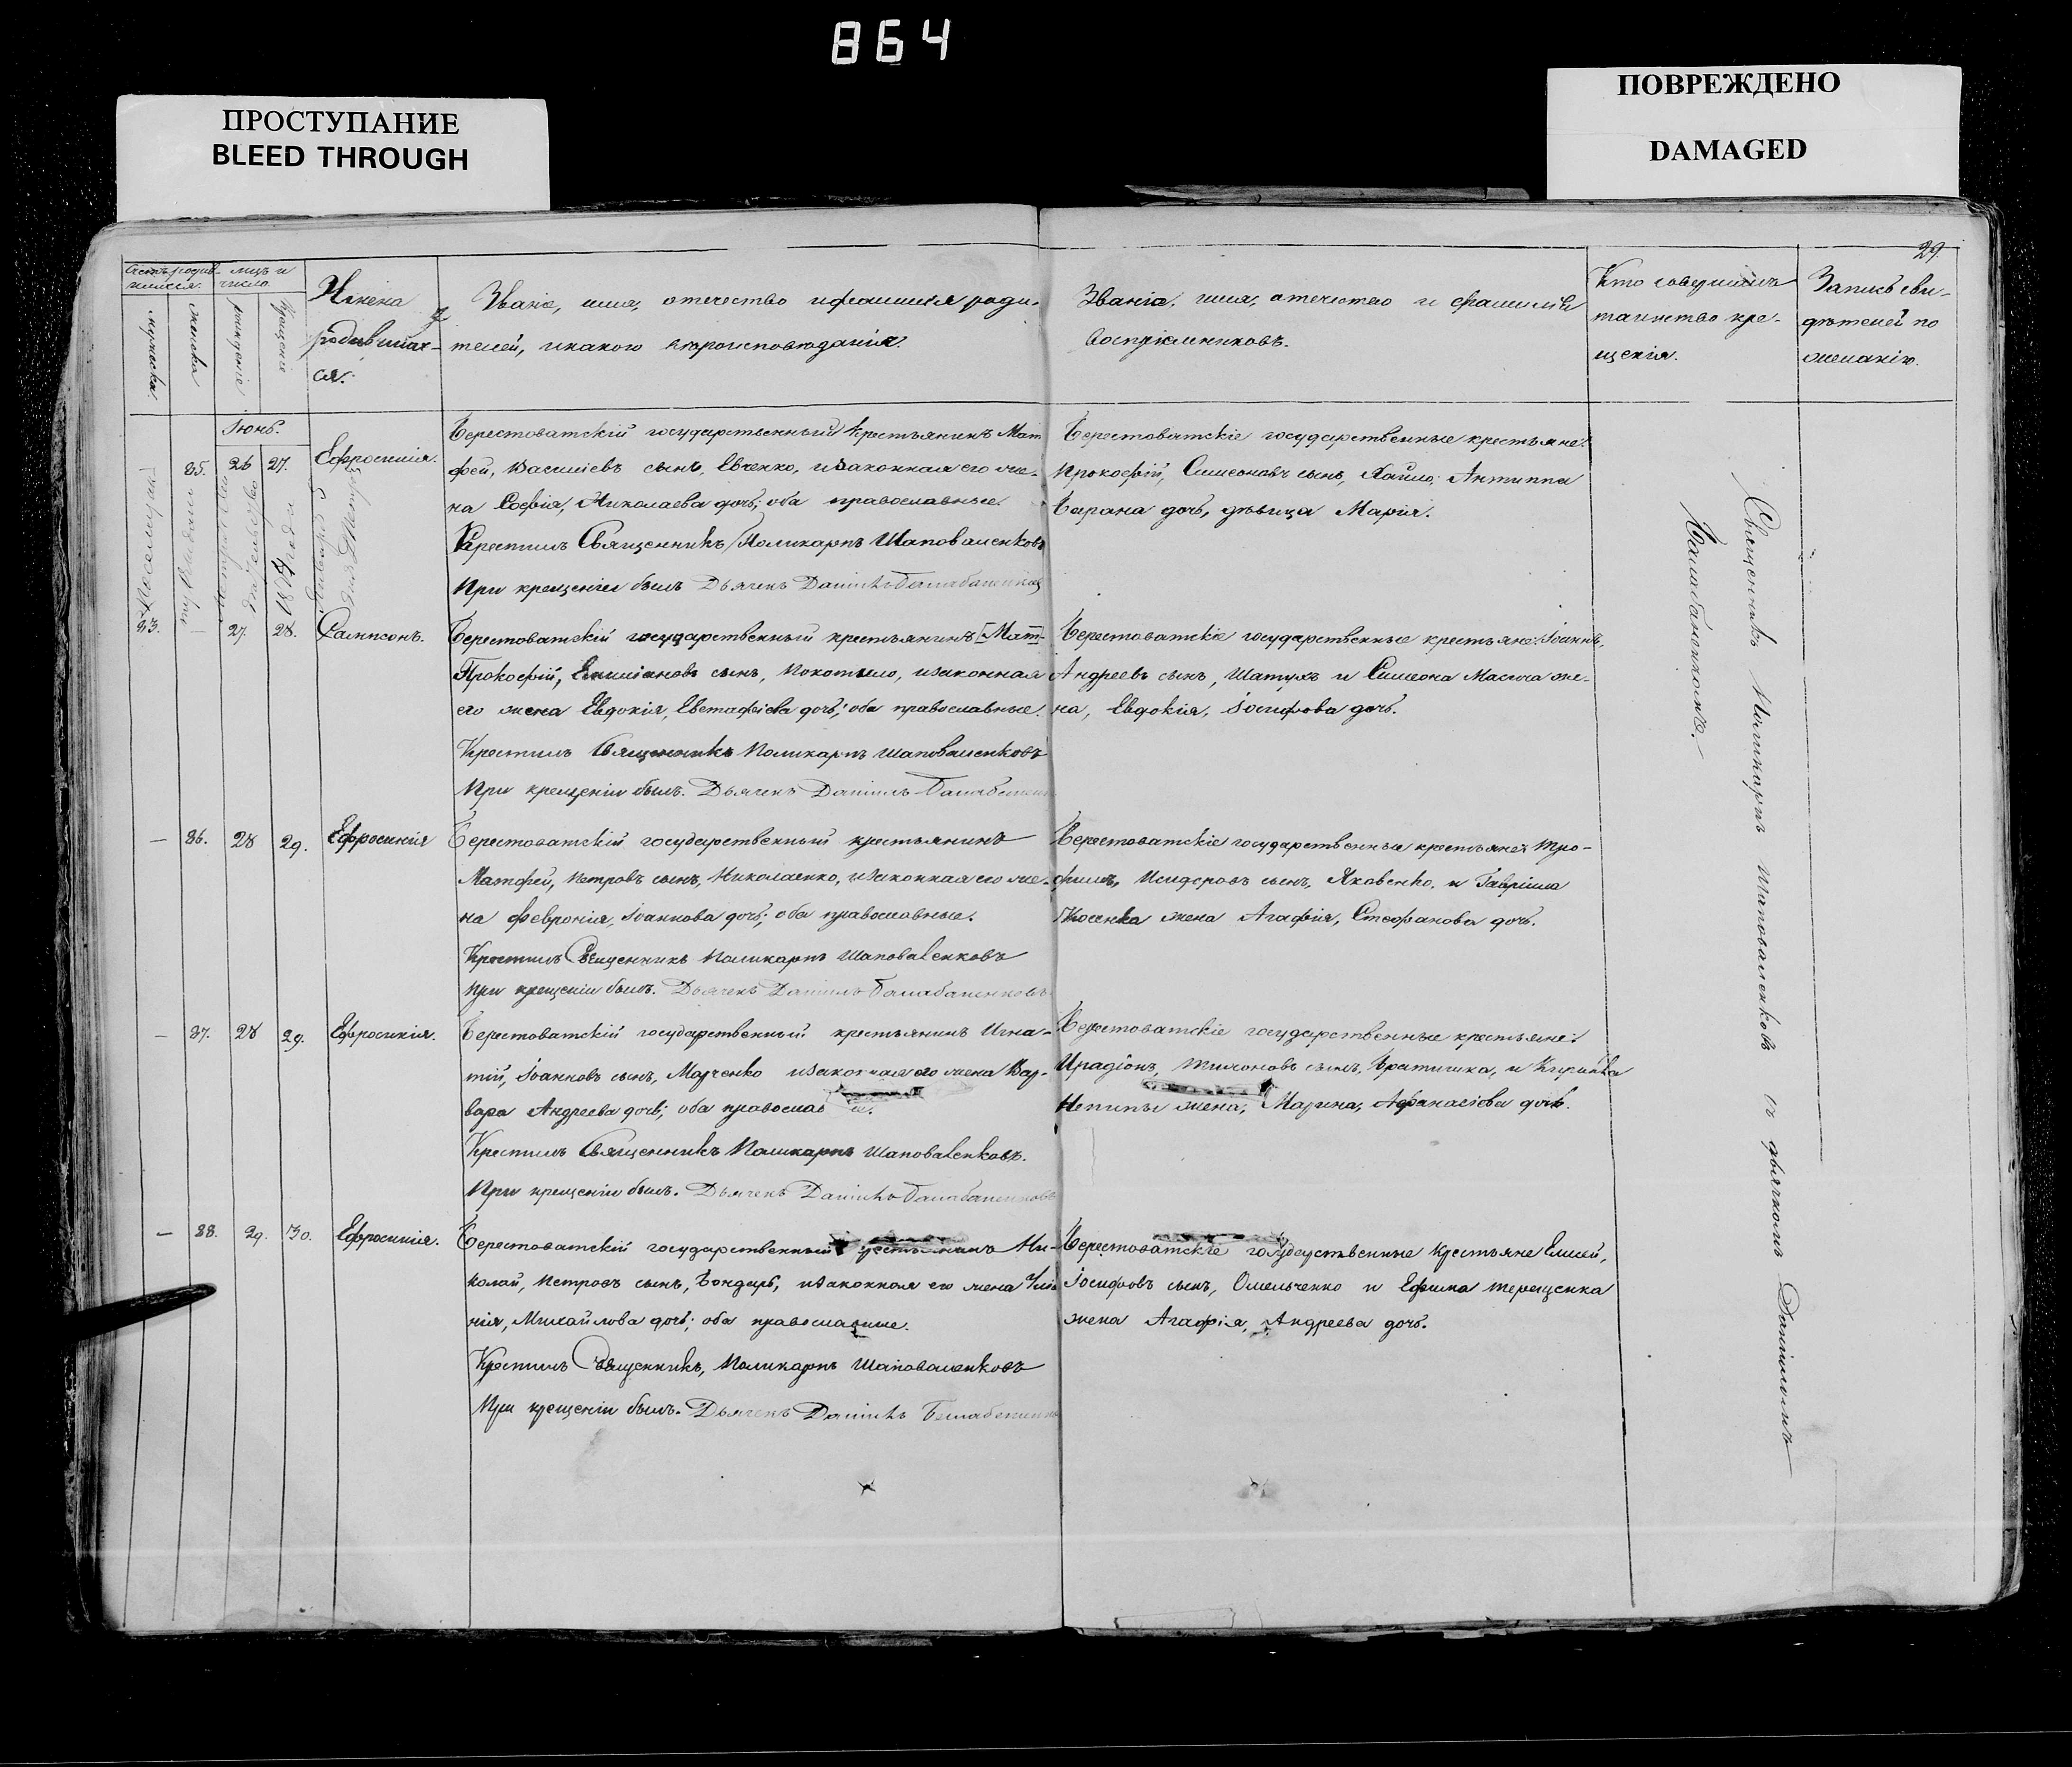 864
ПРОСТУПАНИЕ
BLEED THROUGH
ПОВРЕЖДЕНО
DAMAGED
29.
Имена
родившихъ-
ся.
Званіе, имя, отечество и фамилія роди-
телей, и какого вѣроисповѣданія.
Званіе, имя, отечество и фамилія
воспріемниковъ.
Кто совершилъ
таинство кре-
щенія.
Запись сви-
дѣтелей по
желанію.
Іюнь.
85. 26 27. Ефросинія.
Берестоватскій государственный крестьянинъ Мат
фей, Василіевъ сынъ, Евченко, и законная его же-
на Софія, Николаева дочь; оба православные.
Крестилъ Священникъ Поликарпъ Шаповаленковъ
При крещеніи былъ Дьячекъ Даніилъ Балабаненковъ
Берестоватскіе государственные крестьяне:
Прокофій, Симеоновъ сынъ, Хайло; Антиппа
Барана дочь, дѣвица Марія.
83. — 27. 28. Сампсонъ.
Берестоватскій государственный крестьянинъ [Мат-
Прокофій, Емиліановъ сынъ, Покотыло, и законная
его жена Евдокія, Евстафіева дочь; оба православные.
Крестилъ Священникъ Поликарпъ Шаповаленковъ
При крещеніи былъ. Дьячекъ Даніилъ
Берестоватскіе государственные крестьяне: Іоаннъ,
Андреевъ сынъ, Шатухъ и Симеона Масюча же-
на, Евдокія, Іосифова дочь.
— 86. 28 29. Ефросинія
Берестоватскій государственный крестьянинъ
Матфей, Петровъ сынъ, Николаенко, и законная его же-
на Февронія, Іоаннова дочь; оба православные.
Крестилъ Священникъ Поликарпъ Шаповаленковъ
При крещеніи былъ. Дьячекъ Даніилъ Балабаненковъ
Берестоватскіе государственные крестьяне: Тро-
фимъ, Исидоровъ сынъ, Яковенко, и Гавріила
жена Агафія, Стефанова дочь.
— 87. 28 29. Ефросинія.
Берестоватскій государственный крестьянинъ Игна-
тій, Іоанновъ сынъ, Марченко и законная его жена Вар-
вара Андреева дочь; оба православ
Крестилъ Священникъ Поликарпъ Шаповаленковъ.
При крещеніи былъ. Дьячекъ Даніилъ Балабаненковъ
Берестоватскіе государственные крестьяне:
Иродіонъ, Тихоновъ сынъ, Братишка, и Кирилла
Непипы жена, Марина, Афанасіева дочь.
— 88. 29. 30. Ефросинія.
Берестоватскій государственный крестьянинъ Ни-
колай, Петровъ сынъ, Бондарь, и законная его жена Ули
нія, Михайлова дочь; оба православные.
Крестилъ Священникъ, Поликарпъ Шаповаленковъ
При крещеніи былъ. Дьячекъ Даніилъ
Берестоватскіе государственные крестьяне Елисей,
Іосифовъ сынъ, Омельченко и Ефима Терещенка
жена Агафія, Андреева дочь.
Священникъ Поликарпъ Шаповаленковъ съ дьячкомъ Данииломъ
Балабаненкомъ.